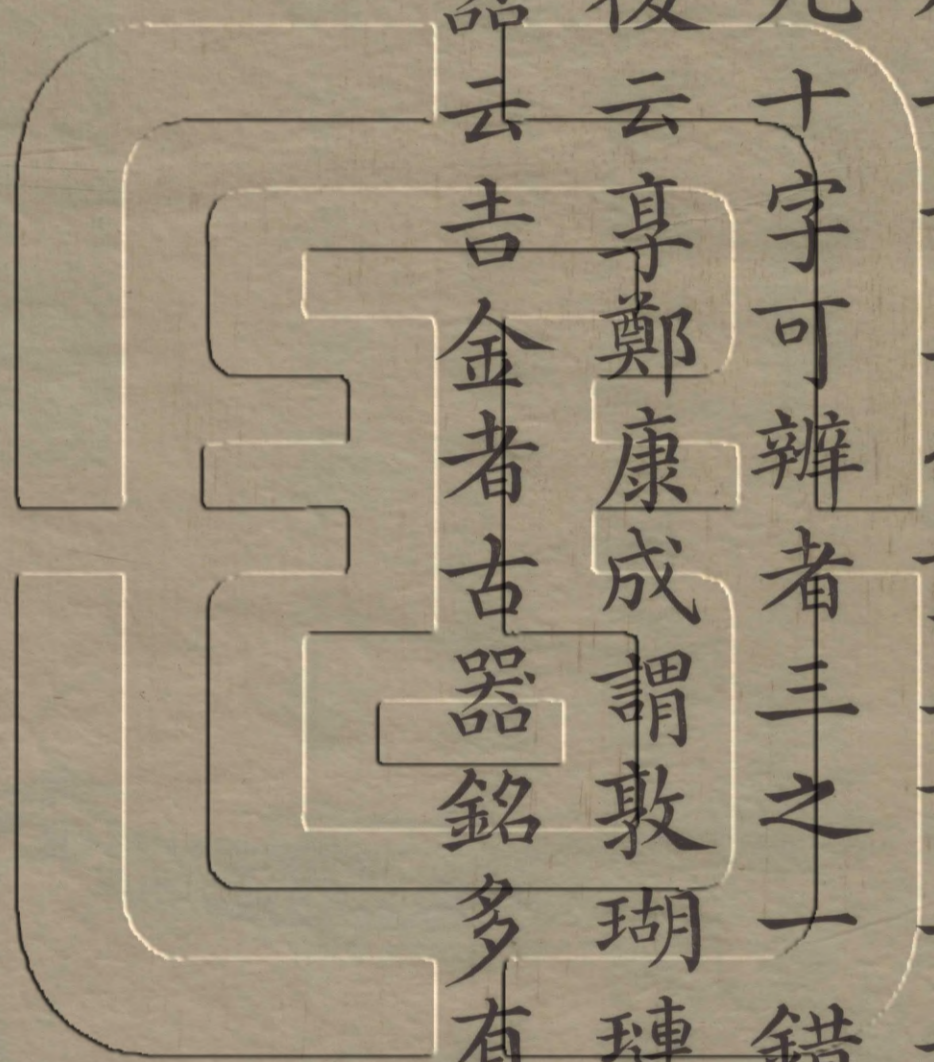 十字可辨者三之一錯
後云享鄭康成謂敦瑚璉
器云吉金者古器銘多有